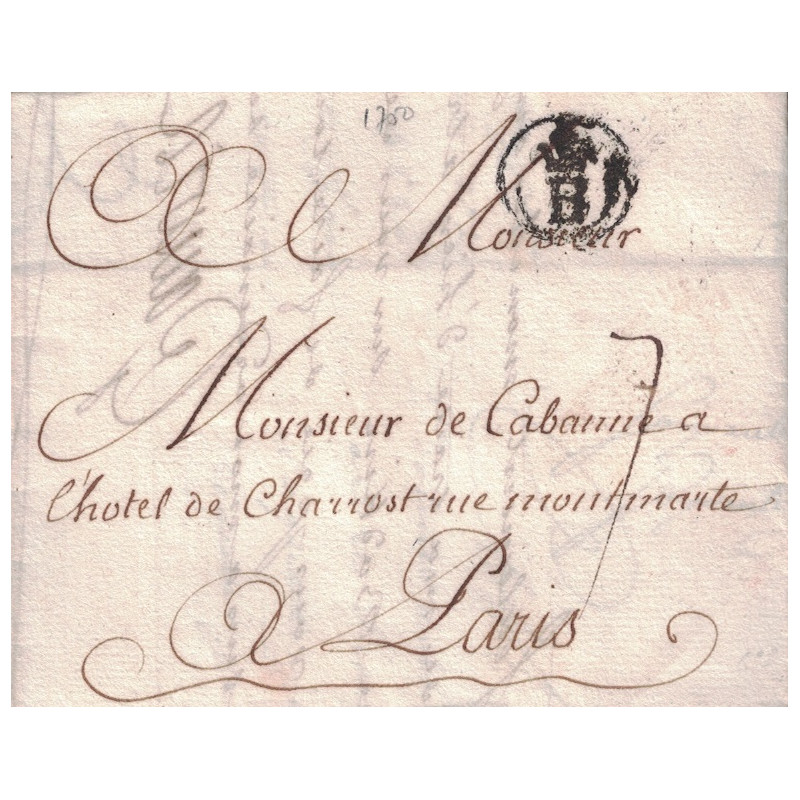 1750
B
A Monsieur
Monsieur de Cabanne a
l'hotel de Charrost rue montmarte
7
A Paris